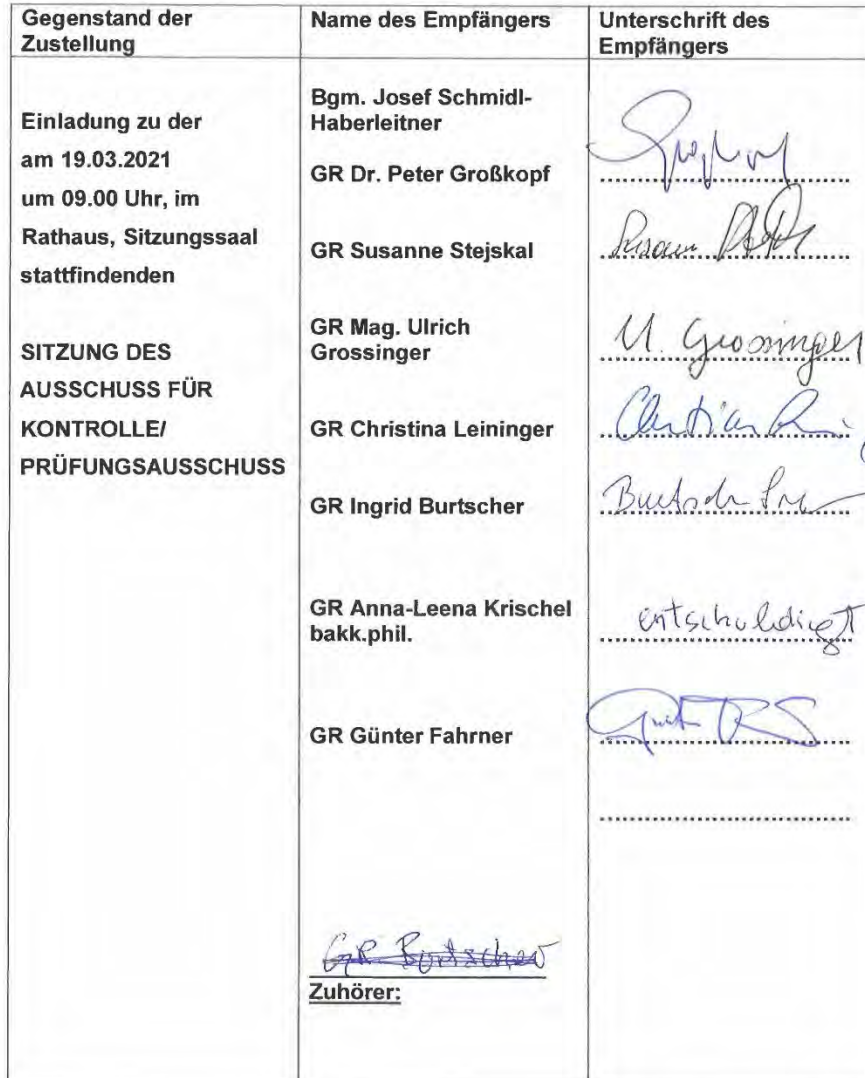 Gegenstand der
Zustellung
Name des Empfängers
Unterschrift des
Empfängers
Einladung zu der
am 19.03.2021
um 09.00 Uhr, im
Rathaus, Sitzungssaal
stattfindenden
SITZUNG DES
AUSSCHUSS FÜR
KONTROLLE/
PRÜFUNGSAUSSCHUSS
Bgm. Josef Schmidl-
Haberleitner
GR Dr. Peter Großkopf
GR Susanne Stejskal
Susanne
GR Mag. Ulrich
Grossinger
U. Grossinger
GR Christina Leininger
GR Ingrid Burtscher
GR Anna-Leena Krischel
bakk.phil.
entschuldigt
GR Günter Fahrner
GR Burtscher
Zuhörer: